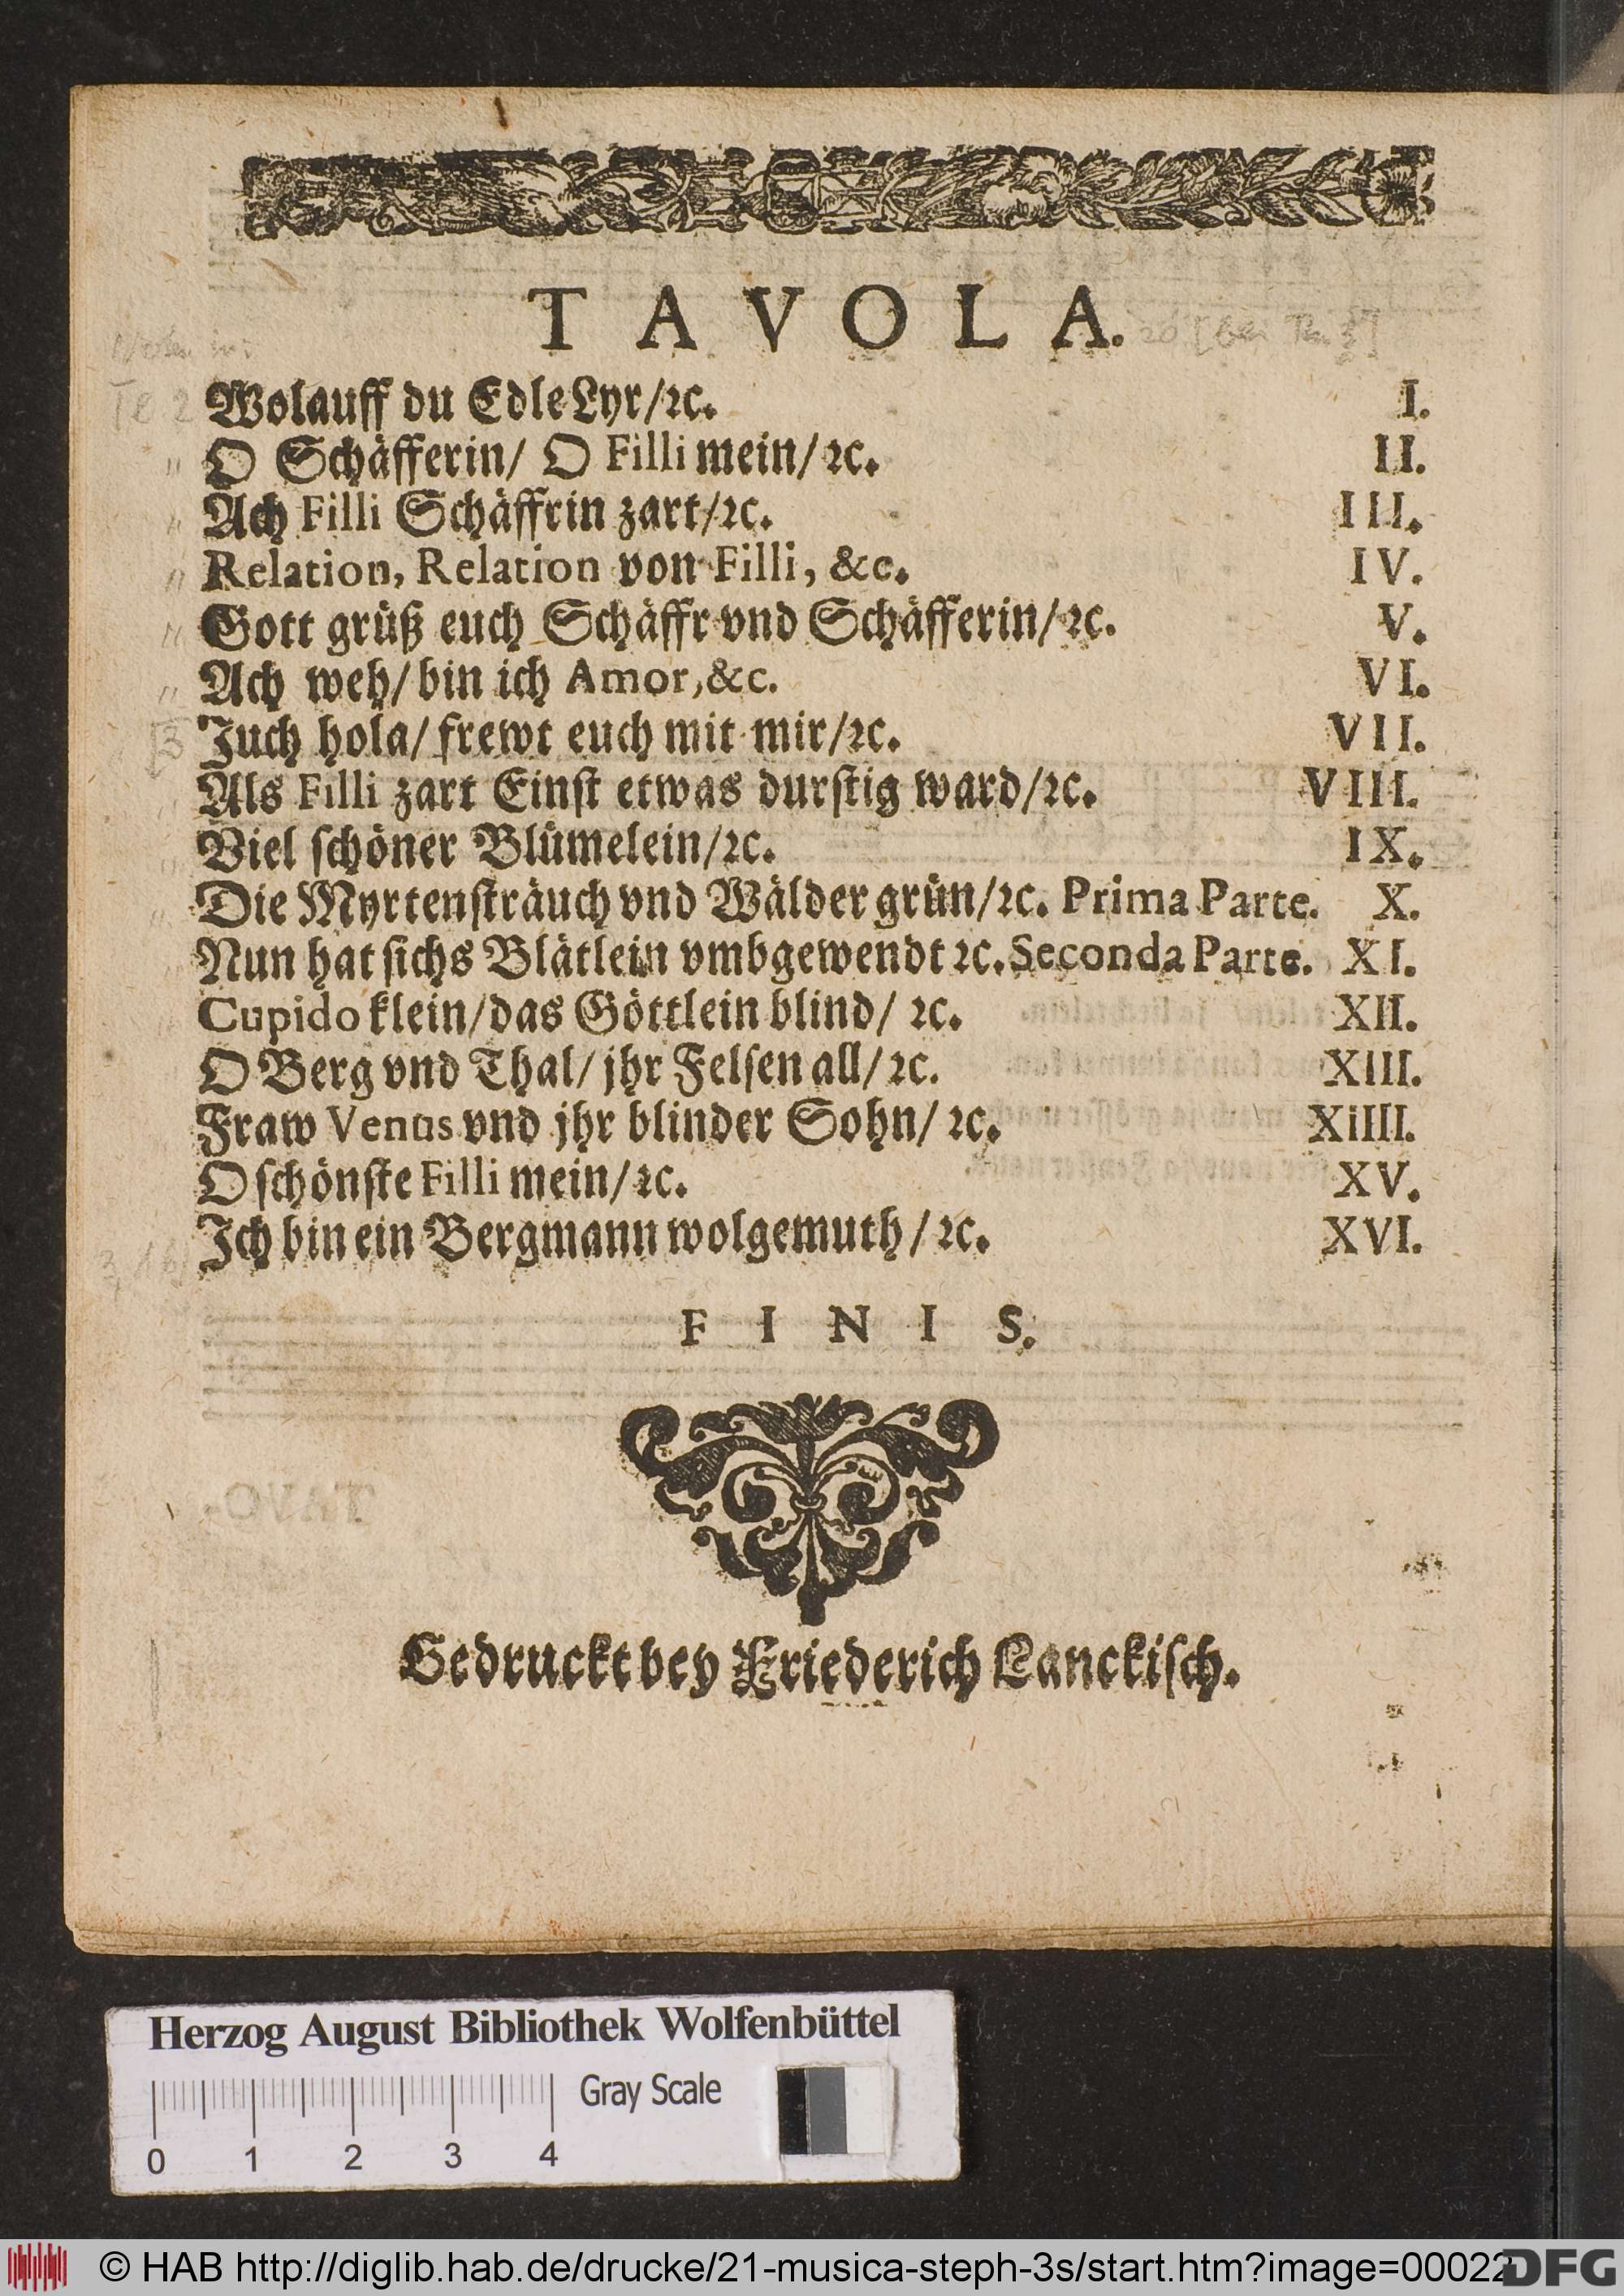 TAVOLA.
Wolauff du Edle Lyr/ꝛc. I.
O Schäfferin/ O Filli mein/ꝛc. II.
Ach Filli Schäffrin zart/ꝛc. III.
Relation, Relation von Filli, &c. IV.
Gott grüß euch Schäffr vnd Schäfferin/ꝛc. V.
Ach weh/ bin ich Amor, &c. VI.
Juch hola/ frewt euch mit mir/ꝛc. VII.
Als Filli zart Einſt etwas durſtig ward/ꝛc. VIII.
Viel ſchöner Blümelein/ꝛc. IX.
Die Myrtenſträuch vnd Wälder grün/ꝛc. Prima Parte. X.
Nun hat ſichs Blätlein vmbgewendt ꝛc. Seconda Parte. XI.
Cupido klein/das Göttlein blind/ ꝛc. XII.
O Berg vnd Thal/ jhr Felſen all/ ꝛc. XIII.
Fraw Venus vnd jhr blinder Sohn/ ꝛc. XiIII.
O ſchönſte Filli mein/ꝛc. XV.
Ich bin ein Bergmann wolgemuth/ ꝛc. XVI.
FINIS.
Gedruckt bey Friederich Lanckiſch.
Herzog August Bibliothek Wolfenbüttel
Gray Scale
0 1 2 3 4
© HAB http://diglib.hab.de/drucke/21-musica-steph-3s/start.htm?image=00022
DFG